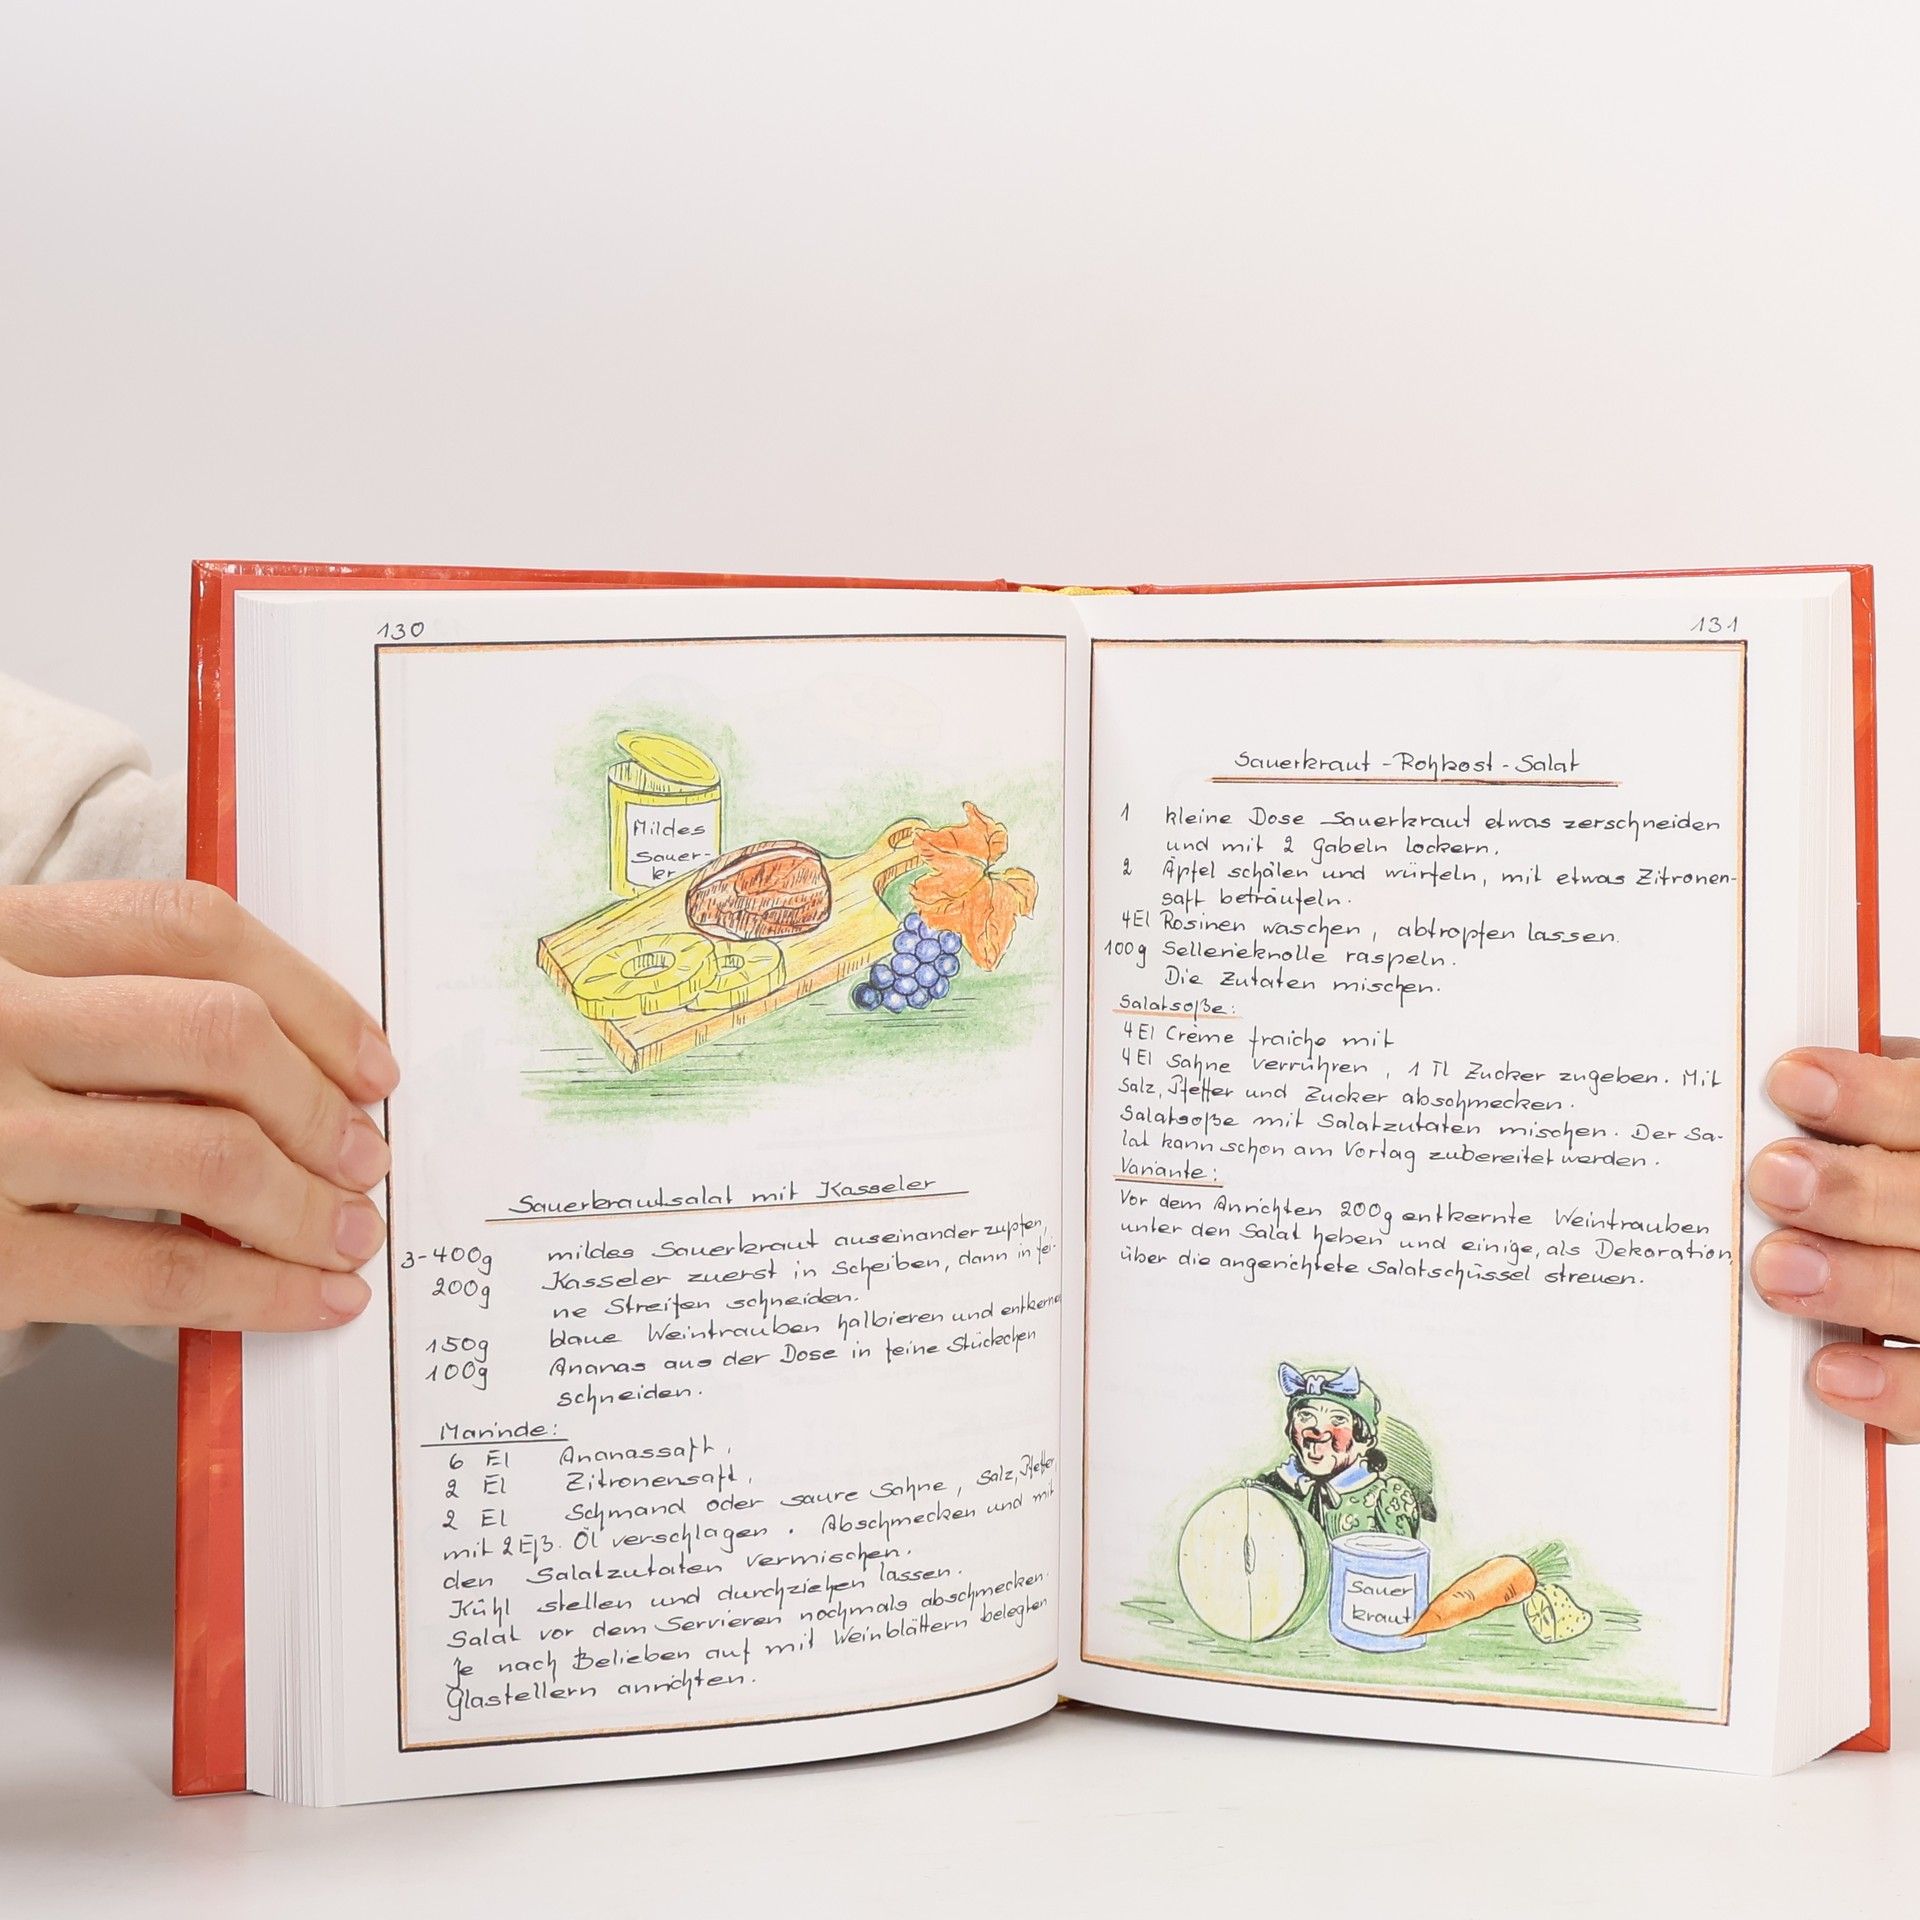 130
Mildes
Sauer-
kr
Sauerkrautsalat mit Kasseler
3-400g mildes Sauerkraut auseinanderzupfen,
200g Kasseler zuerst in Scheiben, dann in fei-
ne Streifen schneiden.
150g blaue Weintrauben halbieren und entkernen
100g Ananas aus der Dose in feine Stückchen
schneiden.
Marinde:
6 El Ananassaft,
2 El Zitronensaft,
2 El Schmand oder saure Sahne, Salz, Pfeffer
mit 2 Eß. Öl verschlagen. Abschmecken und mit
den Salatzutaten vermischen.
Kühl stellen und durchziehen lassen.
Salat vor dem Servieren nochmals abschmecken.
Je nach Belieben auf mit Weinblättern belegten
Glastellern anrichten.
131
Sauerkraut-Rohkost-Salat
1 kleine Dose Sauerkraut etwas zerschneiden
und mit 2 Gabeln lockern.
2 Äpfel schälen und würfeln, mit etwas Zitronen-
saft beträufeln.
4El Rosinen waschen, abtropfen lassen.
100g Sellerieknolle raspeln.
Die Zutaten mischen.
Salatsoße:
4El Crème fraîche mit
4El Sahne verrühren, 1 Tl Zucker zugeben. Mit
Salz, Pfeffer und Zucker abschmecken.
Salatsoße mit Salatzutaten mischen. Der Sa-
lat kann schon am Vortag zubereitet werden.
Variante:
Vor dem Anrichten 200g entkernte Weintrauben
unter den Salat heben und einige, als Dekoration,
über die angerichtete Salatschüssel streuen.
M
Sauer
kraut